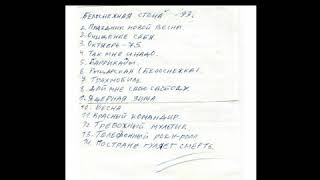 "Белоснежная стена" -93г.
1. Праздник новой весны
2. Очищение себя
3. Октябрь-75
4. Так мне и надо.
5. Баррикады.
6. Рыцарская (Белоснежка).
7. Трахмобиль
8. Дай мне свою свободу
9. Ядерная зима
10. Весна
11. Красный командир
12. Тревожный мультик
13. Телефонный рок-н-ролл
14. По стране гуляет смерть.